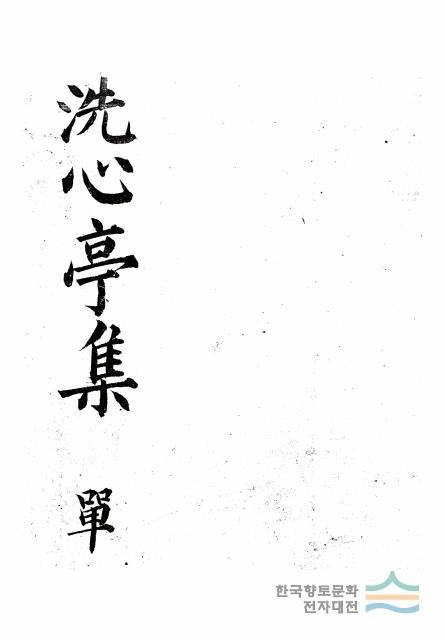 洗心亭集
單
한국향토문화
전자대전